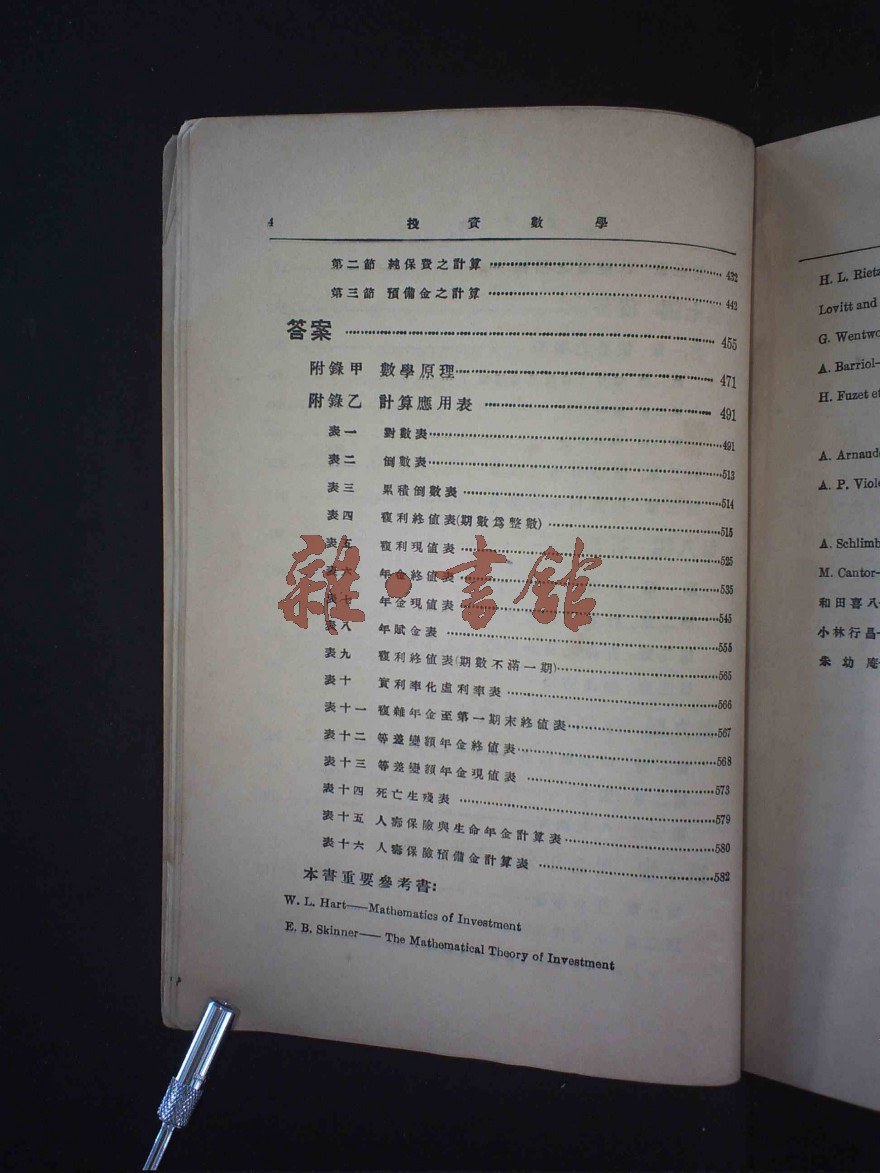 4 投資數學
第二節 純保費之計算 432
第三節 預備金之計算 442
答案 455
附錄甲 數學原理 471
附錄乙 計算應用表 491
表一 對數表 491
表二 倒數表 513
表三 累積倒數表 514
表四 複利終値表(期數爲整數) 515
表五 複利現値表 525
表六 年金終値表 535
表七 年金現値表 545
表八 年賦金表 555
表九 複利終値表(期數不滿一期) 565
表十 實利率化虛利率表 566
表十一 複雜年金至第一期末終値表 567
表十二 等差變額年金終値表 568
表十三 等差變額年金現値表 573
表十四 死亡生殘表 579
表十五 人壽保險與生命年金計算表 580
表十六 人壽保險預備金計算表 582
本書重要參考書:
W. L. Hart—Mathematics of Investment
E. B. Skinner— The Mathematical Theory of Investment
雜·書館
H. L. Rietz
Lovitt and
G. Wentwo
A. Barriol-
H. Fuzet et
A. Arnaude
A. P. Viole
A. Schlimb
M. Cantor-
和田喜八
小林行昌
朱幼庵